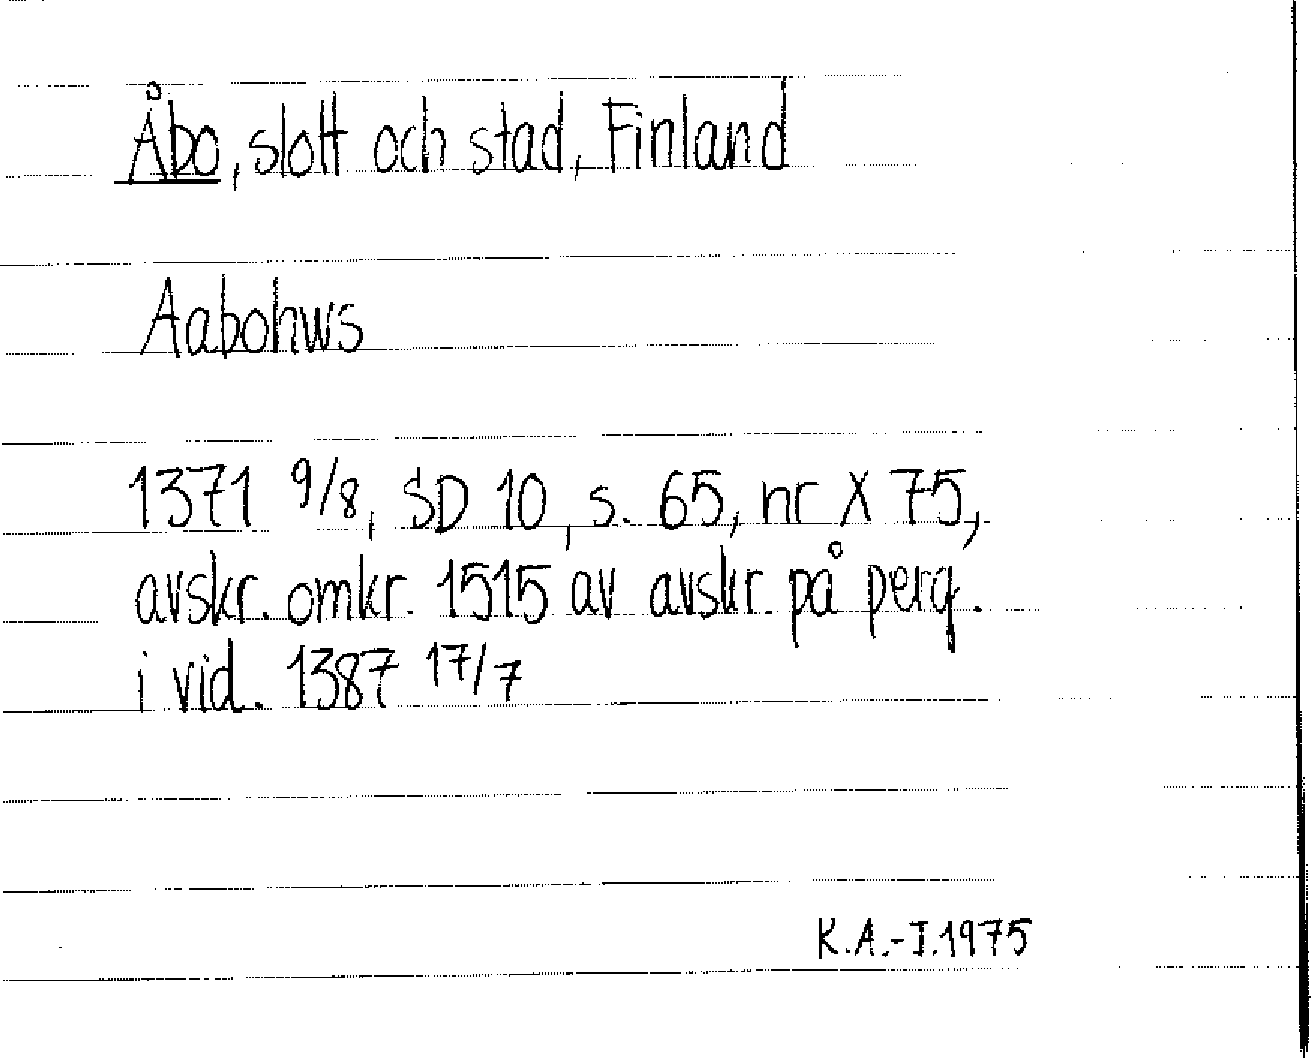 Åbo, slott och stad, Finland
Aabohws
1371 9/8, SD 10, s. 65, nr X 75,
avskr. omkr. 1515 av avskr. på perg.
i vid. 1387 17/7
K.A.-I.1975